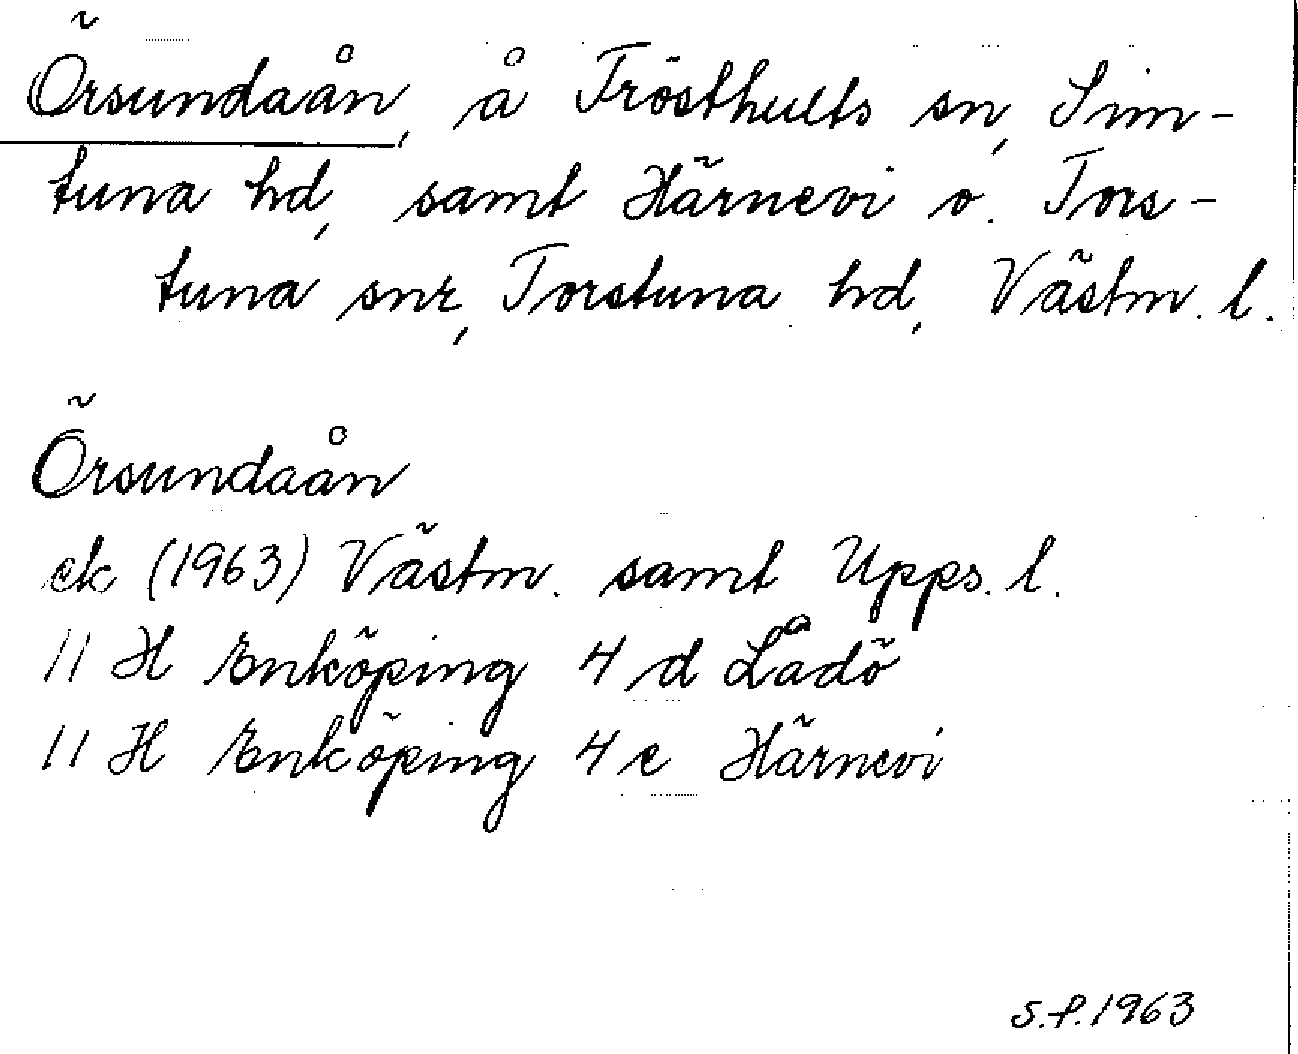 Örsundaån, å Frösthults sn, Sim-
tuna hd, samt Härnevi o. Tors-
tuna snr, Torstuna hd, Västm. l.
Örsundaån
ek (1963) Västm. samt Upps. l.
11 H Enköping 4 d Ladö
11 H Enköping 4 e Härnevi
S.P. 1963